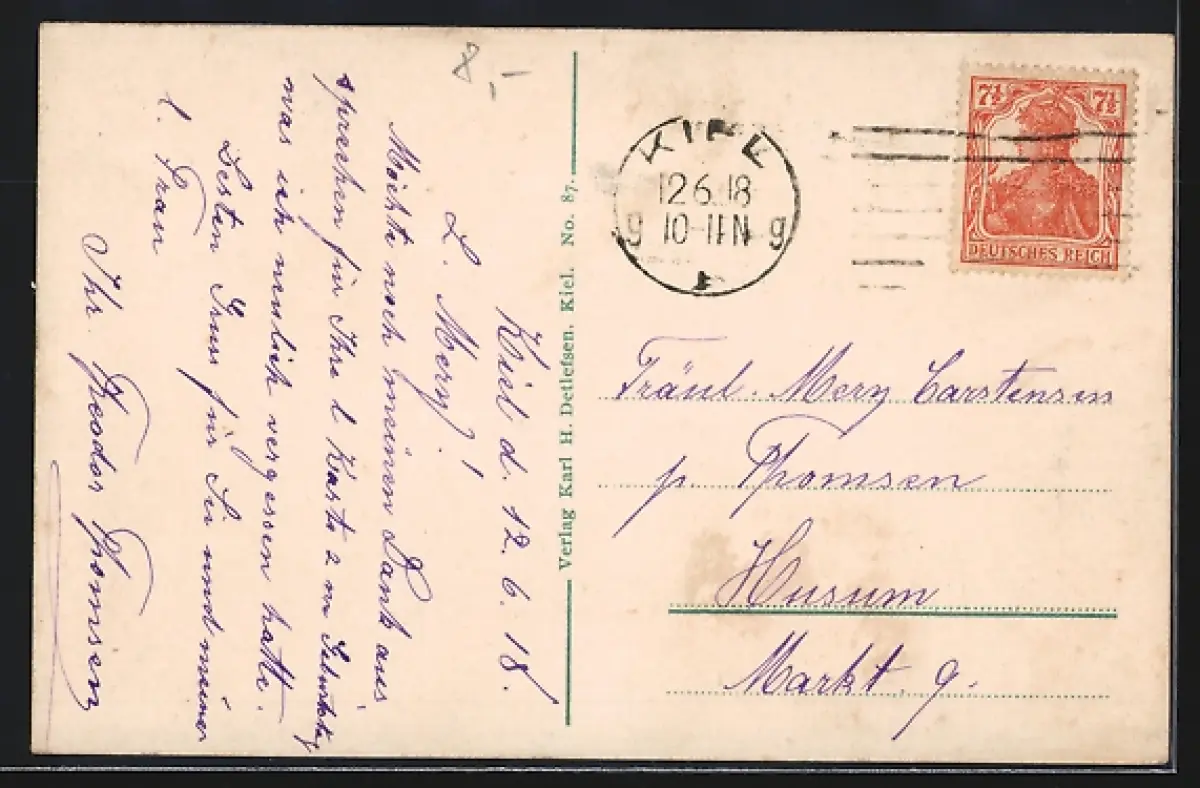 8,-
Kiel d. 12. 6. 18.
L. Merry!
Möchte noch meinen Dank aus
sprechen für Ihre l Karte z m Geburtstag
was ich neulich vergessen hatte.
Besten Gruss für Sie und meiner
l. Frau
Ihr. Theodor Thomsen
Verlag Karl H. Detlefsen, Kiel. No. 87.
KIEL
12 6.18
g 10-11 N g
7½ 7½
DEUTSCHES REICH
Fräul. Merry Carstensen
p. Thomsen
Husum
Markt. 9.